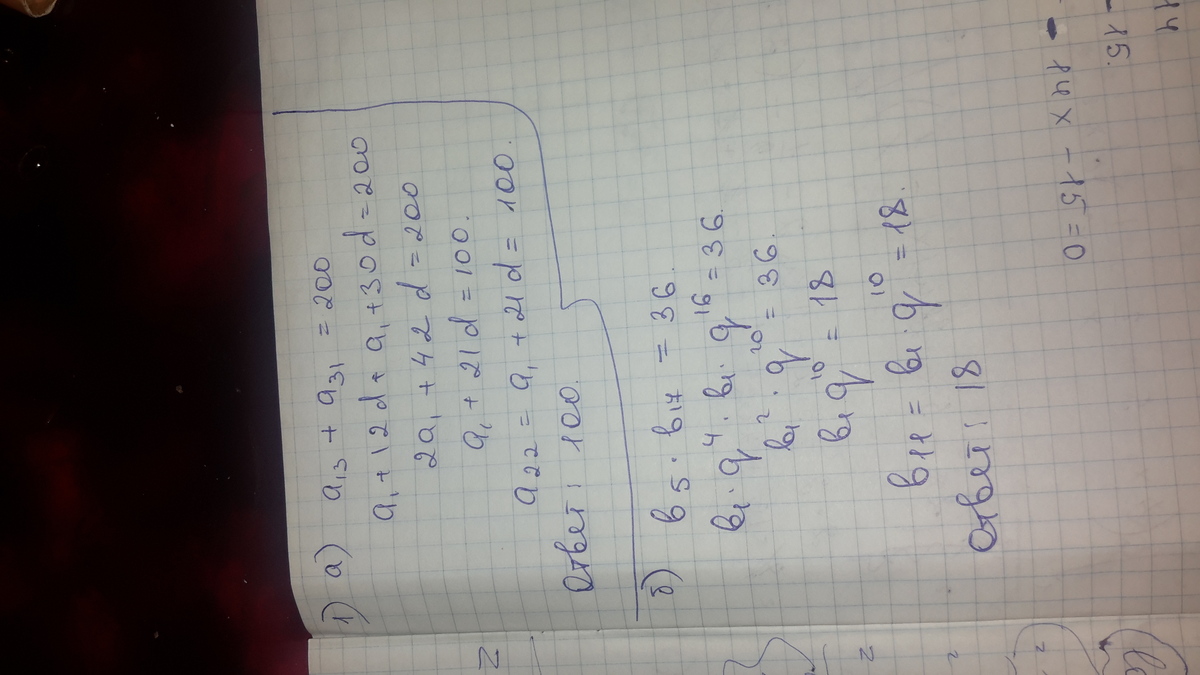 1) а) a₁₃ + a₃₁ = 200
a₁ + 12d + a₁ + 30d = 200
2a₁ + 42d = 200
a₁ + 21d = 100.
a₂₂ = a₁ + 21d = 100.
Ответ: 100.
б) b₅ · b₁₇ = 36.
b₁ · q⁴ · b₁ · q¹⁶ = 36.
b₁² · q²⁰ = 36.
b₁ q¹⁰ = 18
b₁₁ = b₁ · q¹⁰ = 18.
Ответ: 18
14x - 15 = 0
- 15.
14